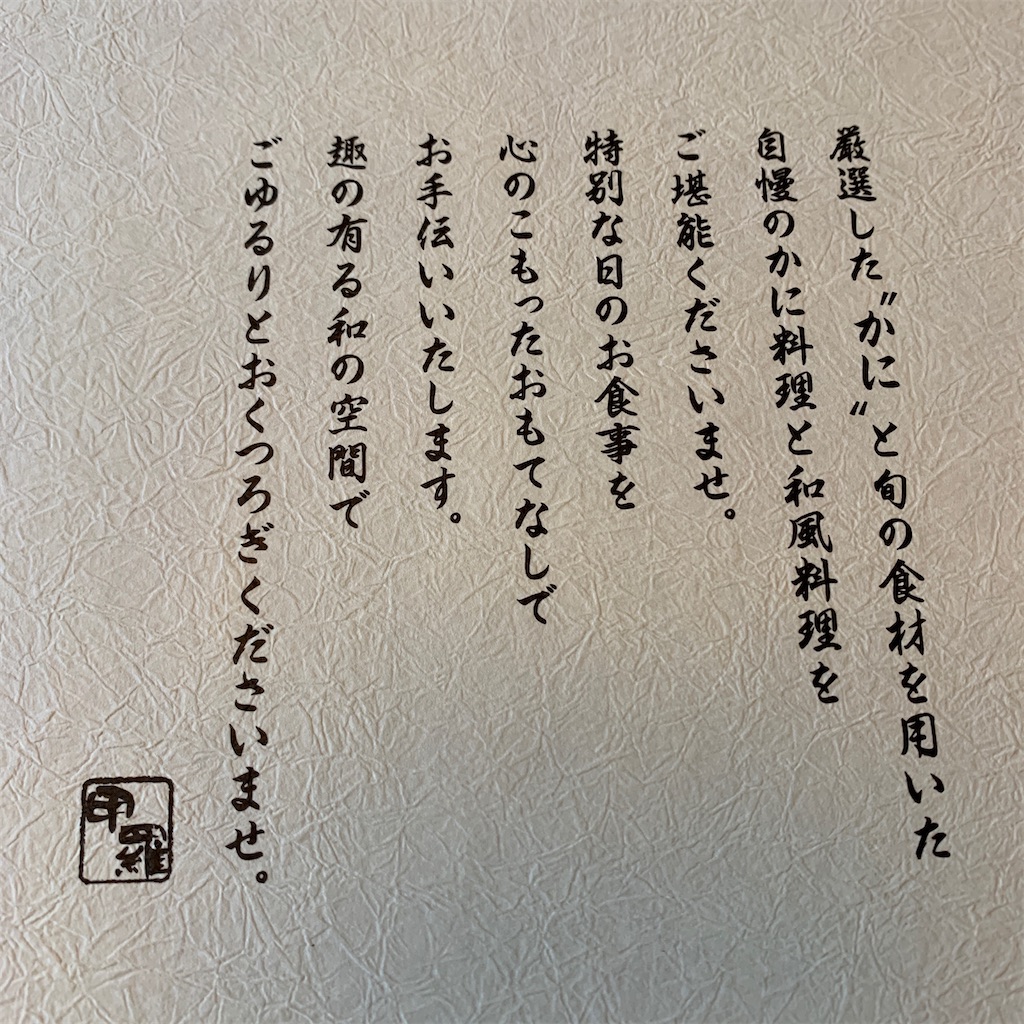 厳選した〝かに〟と旬の食材を用いた
自慢のかに料理と和風料理を
ご堪能くださいませ。
特別な日のお食事を
心のこもったおもてなしで
お手伝いいたします。
趣の有る和の空間で
ごゆるりとおくつろぎくださいませ。
甲羅